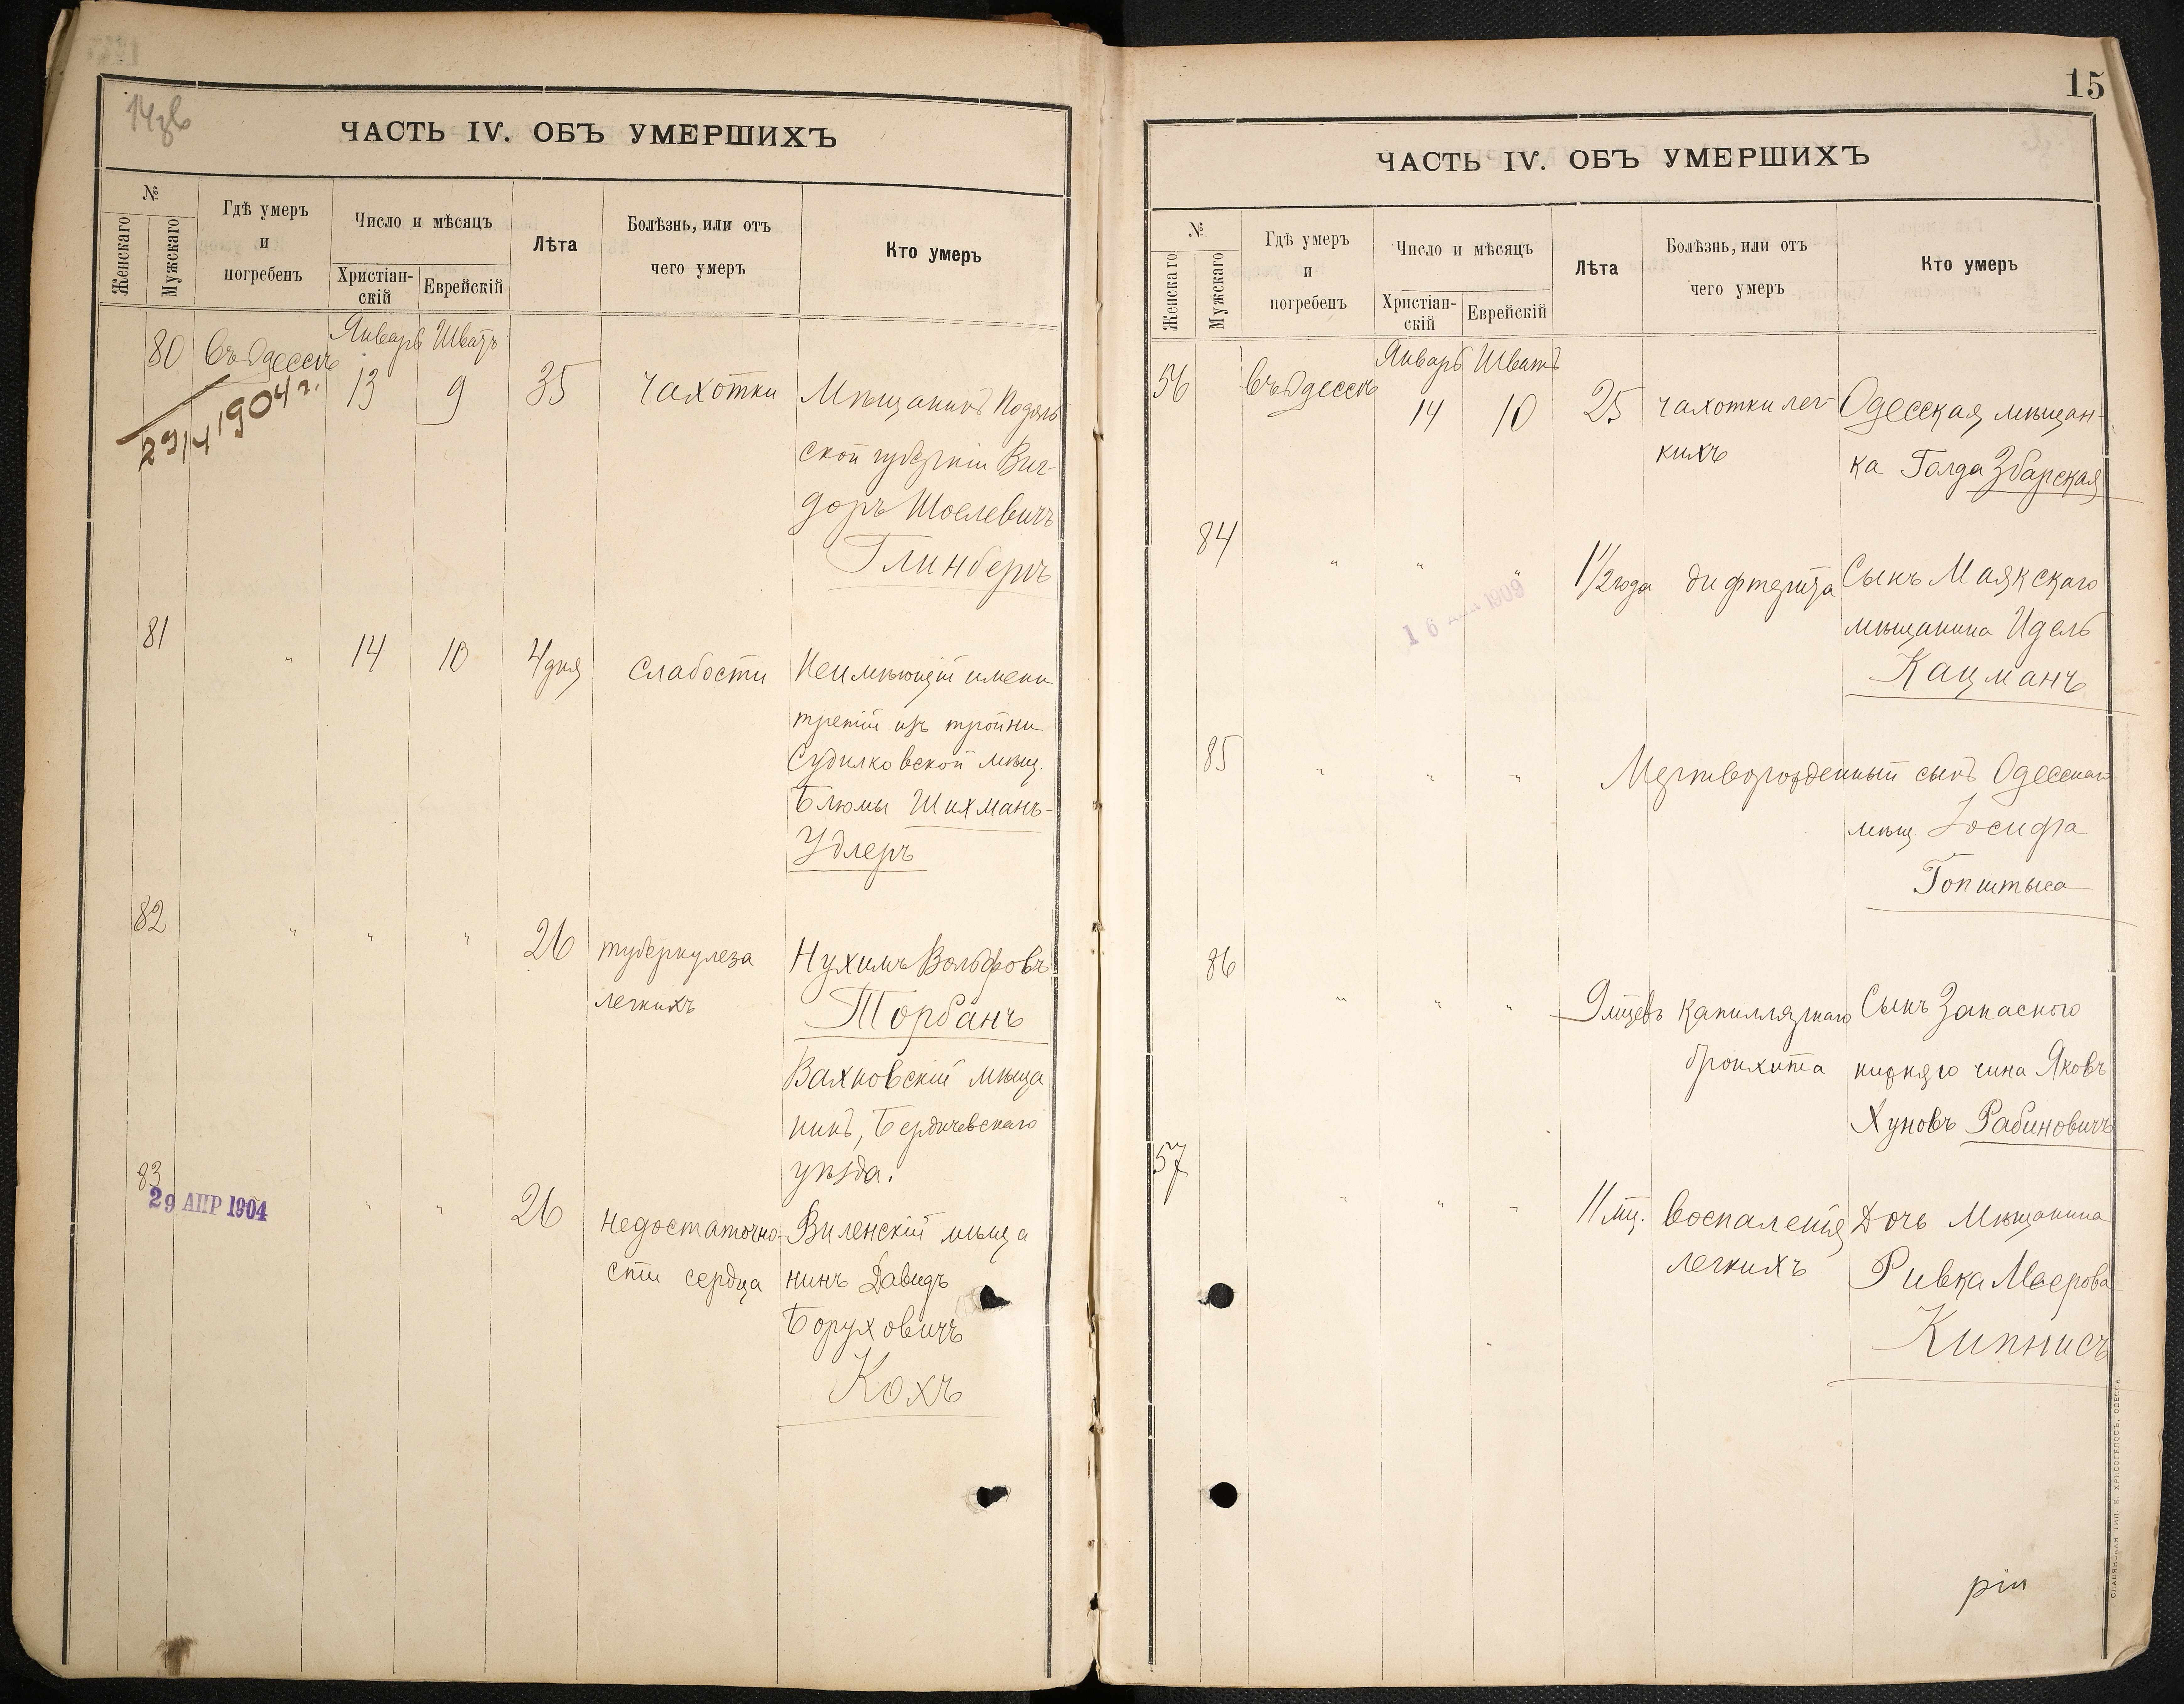 14 об
ЧАСТЬ IV. ОБЪ УМЕРШИХЪ
№
Женскаго
Мужскаго
Гдѣ умеръ
и
погребенъ
Число и мѣсяцъ
Христіан-
скій
Еврейскій
Лѣта
Болѣзнь, или отъ
чего умеръ
Кто умеръ
80 Въ Одессѣ Январь Шватъ
13 9 35 Чахотки Мѣщанинъ Подоль
ской губерніи Виг-
доръ Шоелевичъ
Глинбергъ
29/4 1904 г.
81 " 14 10 4 дня Слабости Неимѣющій имени
третій изъ тройни
Судилковской мѣщ.
Блюмы Шихманъ-
Удлеръ
82 " " " 26 туберкулеза Нухимъ Вольфовъ
легкихъ Торбанъ
Вахновскій мѣща
нинъ, Бердичевскаго
уѣзда.
83
29 АПР 1904
" " 26 недостаточно- Виленскій мѣща
сти сердца нинъ Давидъ
Боруховичъ
Кохъ
15
ЧАСТЬ IV. ОБЪ УМЕРШИХЪ
№
Женскаго
Мужскаго
Гдѣ умеръ
и
погребенъ
Число и мѣсяцъ
Христіан-
скій
Еврейскій
Лѣта
Болѣзнь, или отъ
чего умеръ
Кто умеръ
56 Въ Одессѣ Январь Шватъ
14 10 25 чахотки лег- Одесская мѣщан-
кихъ ка Голда Збарская
84 " " " 1 1/2 года дифтерита Сынъ Маякскаго
мѣщанина Идель
Кацманъ
16 1909
85 " " " Мертворожденный сынъ Одесскаго
мѣщ Іосифа
86 " " " 9 мѣцевъ Капиллярнаго Сынъ Запаснаго
бронхита нижняго чина Яковъ
Хуновъ Рабиновичъ
57 " " " 11 мц. Воспаленія Дочь Мѣщанина
легкихъ Ривка Маерова
Кипнисъ
СЛАВЯНСКАЯ ТИП. Е. ХРИСОГЕЛОСЪ, ОДЕССА.